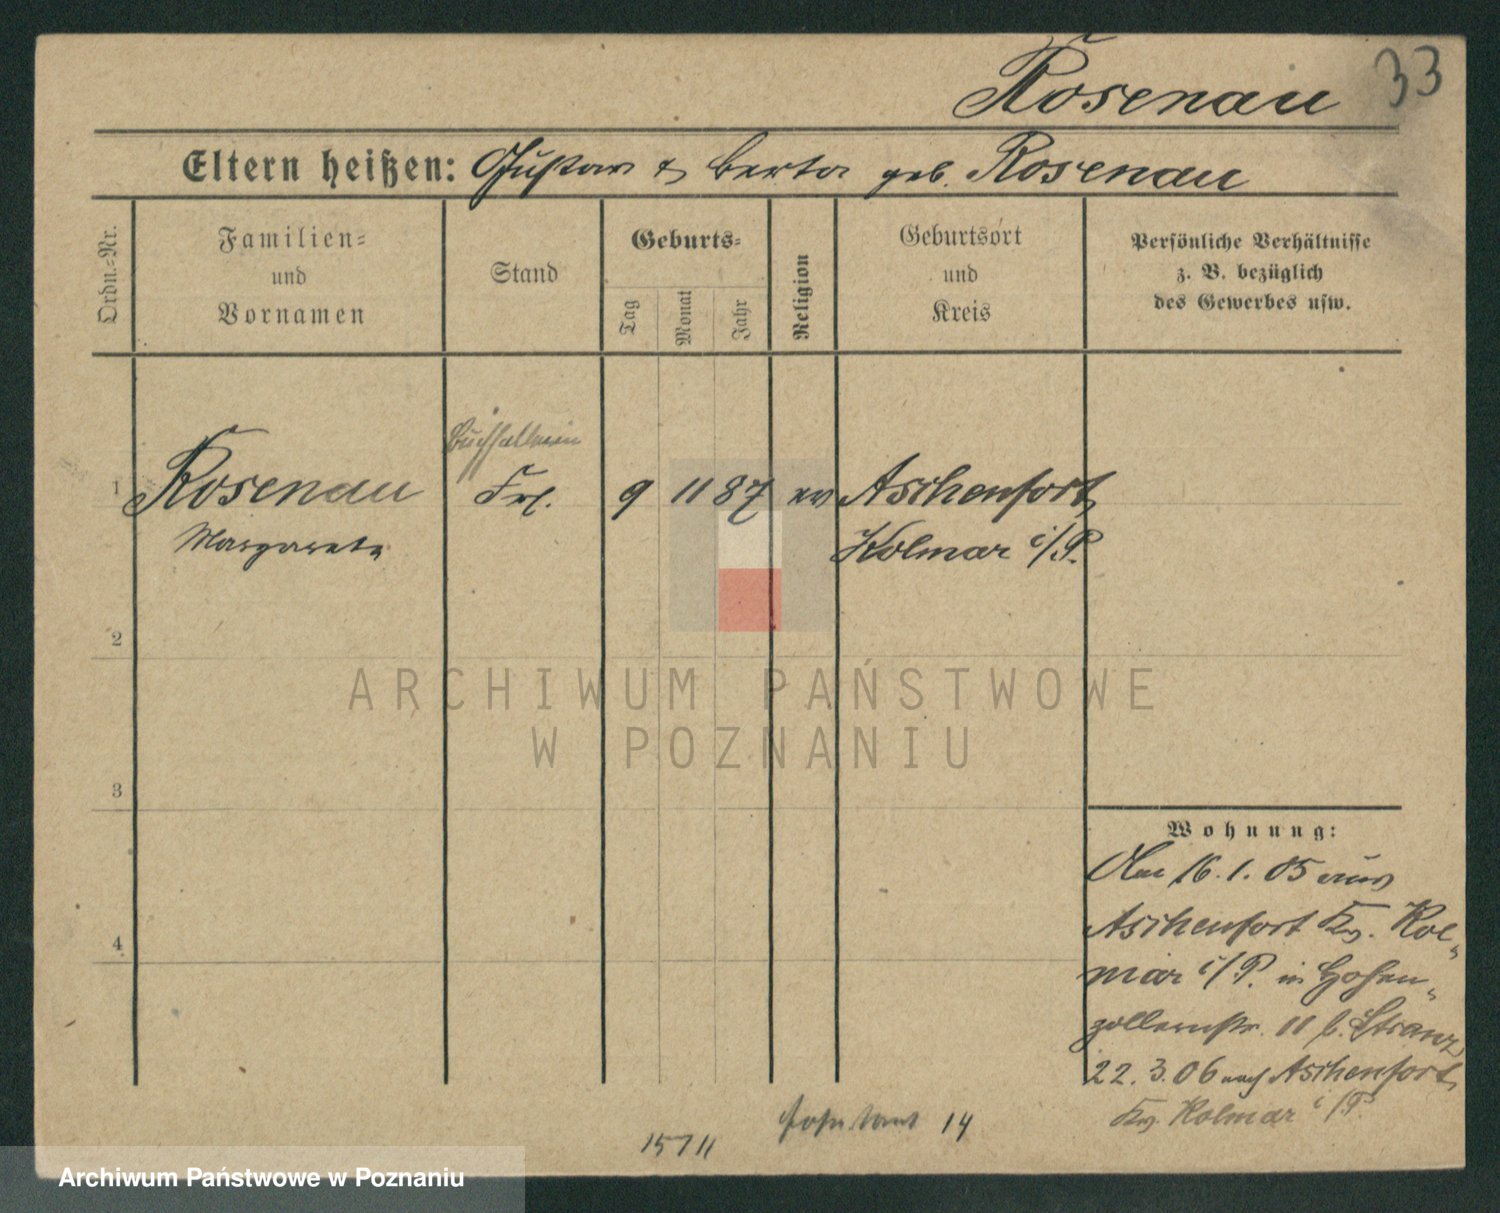 Rosenau 33
Eltern heißen: Gustav & Berta geb. Rosenau
Ordn.-Nr.
Familien-
und
Vornamen
Stand
Geburts-
Tag
Monat
Jahr
Religion
Geburtsort
und
Kreis
Persönliche Verhältnisse
z. B. bezüglich
des Gewerbes usw.
Buchhalterin
1 Rosenau Frl. 9 11 87 ev Aschenfort
Margarete Kolmar i/P.
2
ARCHIWUM PAŃSTWOWE
W POZNANIU
3
Wohnung:
Am 16.1.05 aus
Aschenfort Kr. Kol-
4
mar i/P. in Hohen-
zollernstr. 11 b. Stranz
22.3.06 nach Aschenfort
Kr. Kolmar i/P.
14
1571
Archiwum Państwowe w Poznaniu